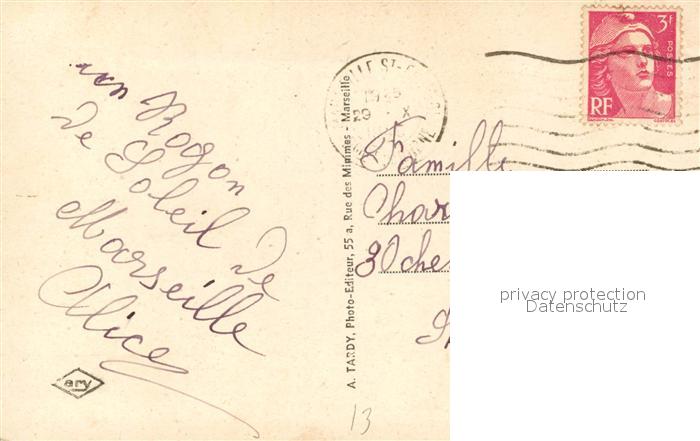 un Rogon
de Soleil de
Marseille
Alice
ary
A. TARDY, Photo-Editeur, 55 a, Rue des Minimes - Marseille
3F
POSTES
RF
Famille
Char
30 che
13
privacy protection
Datenschutz